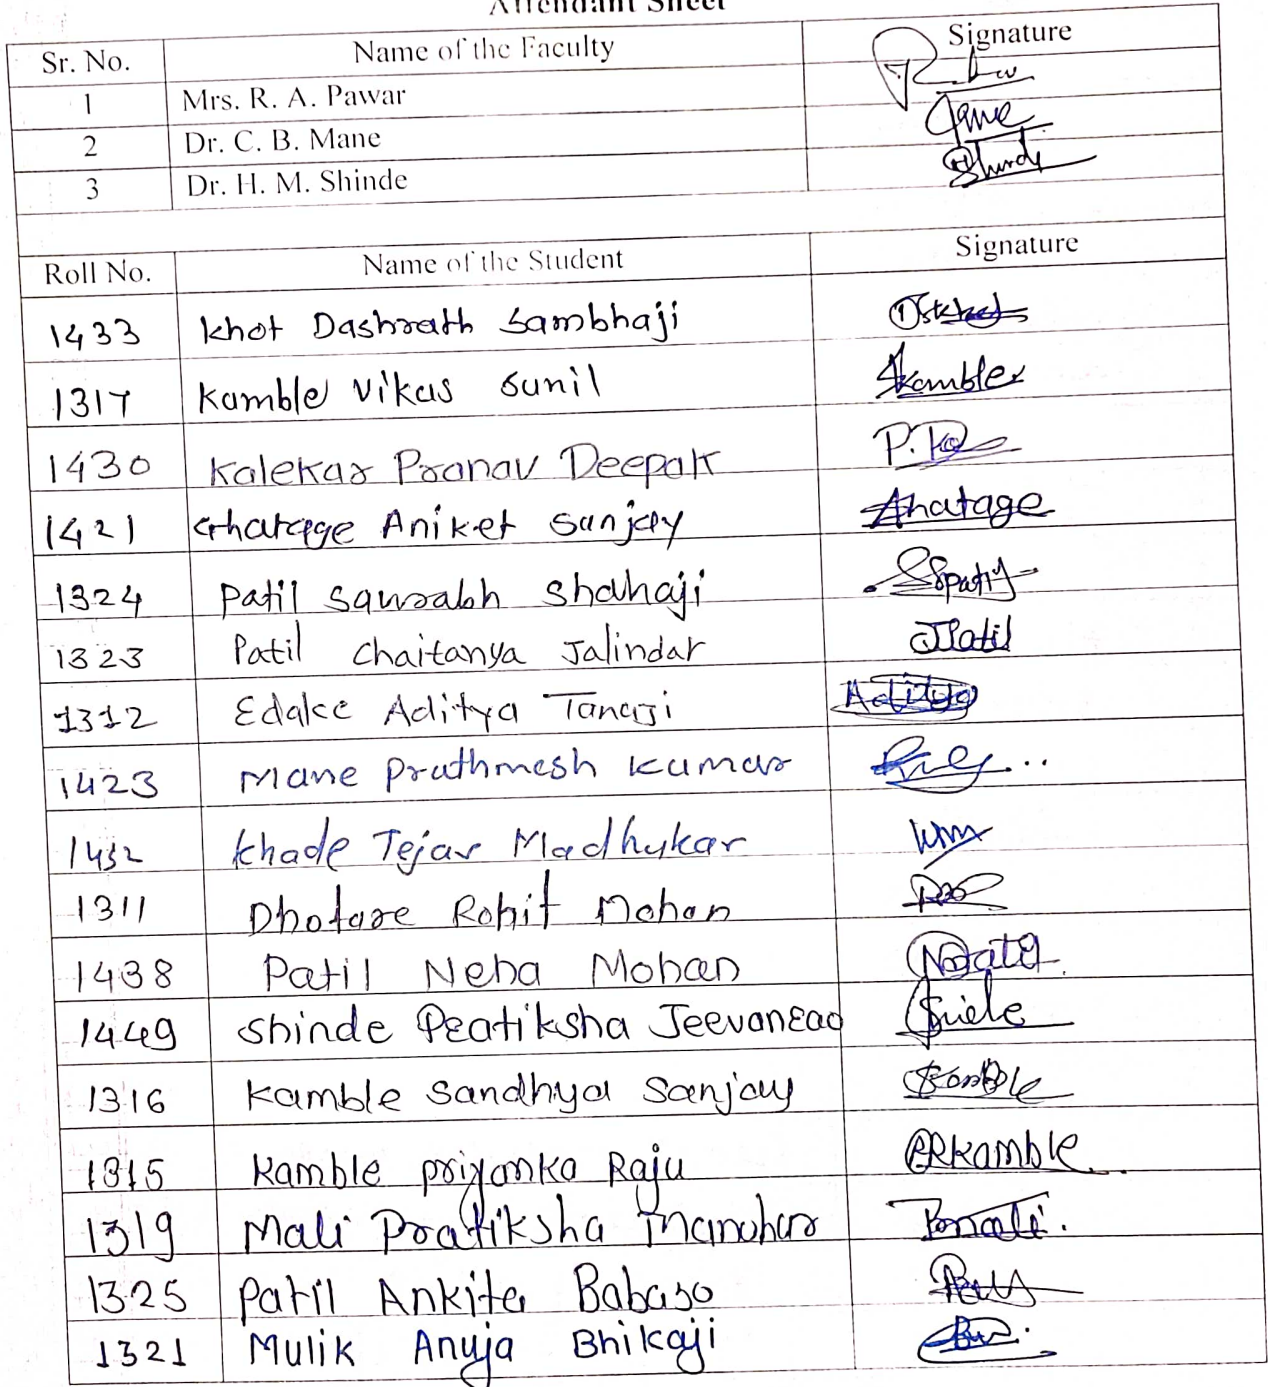 Attendant Sheet
Sr. No. Name of the Faculty Signature
1 Mrs. R. A. Pawar
2 Dr. C. B. Mane
3 Dr. H. M. Shinde Shinde
Roll No. Name of the Student Signature
1433 Khot Dashrath Sambhaji
1317 Kamble Vikas Sunil Kamble
1430 Kalekar Pranav Deepak
1421 Gharage Aniket Sanjay
1324 Patil Saurabh Shahaji
1323 Patil Chaitanya Jalindar JPatil
1312 Edake Aditya Tanaji Aditya
1423 Mane Prathmesh Kumar
1432 Khade Tejas Madhukar
1311 Dhotare Rohit Mohan
1438 Patil Neha Mohan
1449 Shinde Pratiksha Jeevanrao
1316 Kamble Sandhya Sanjay
1315 Kamble Priyanka Raju PRKamble
1319 Mali Pratiksha Manohar Pmali.
1325 Patil Ankita Babaso
1321 Mulik Anuja Bhikaji